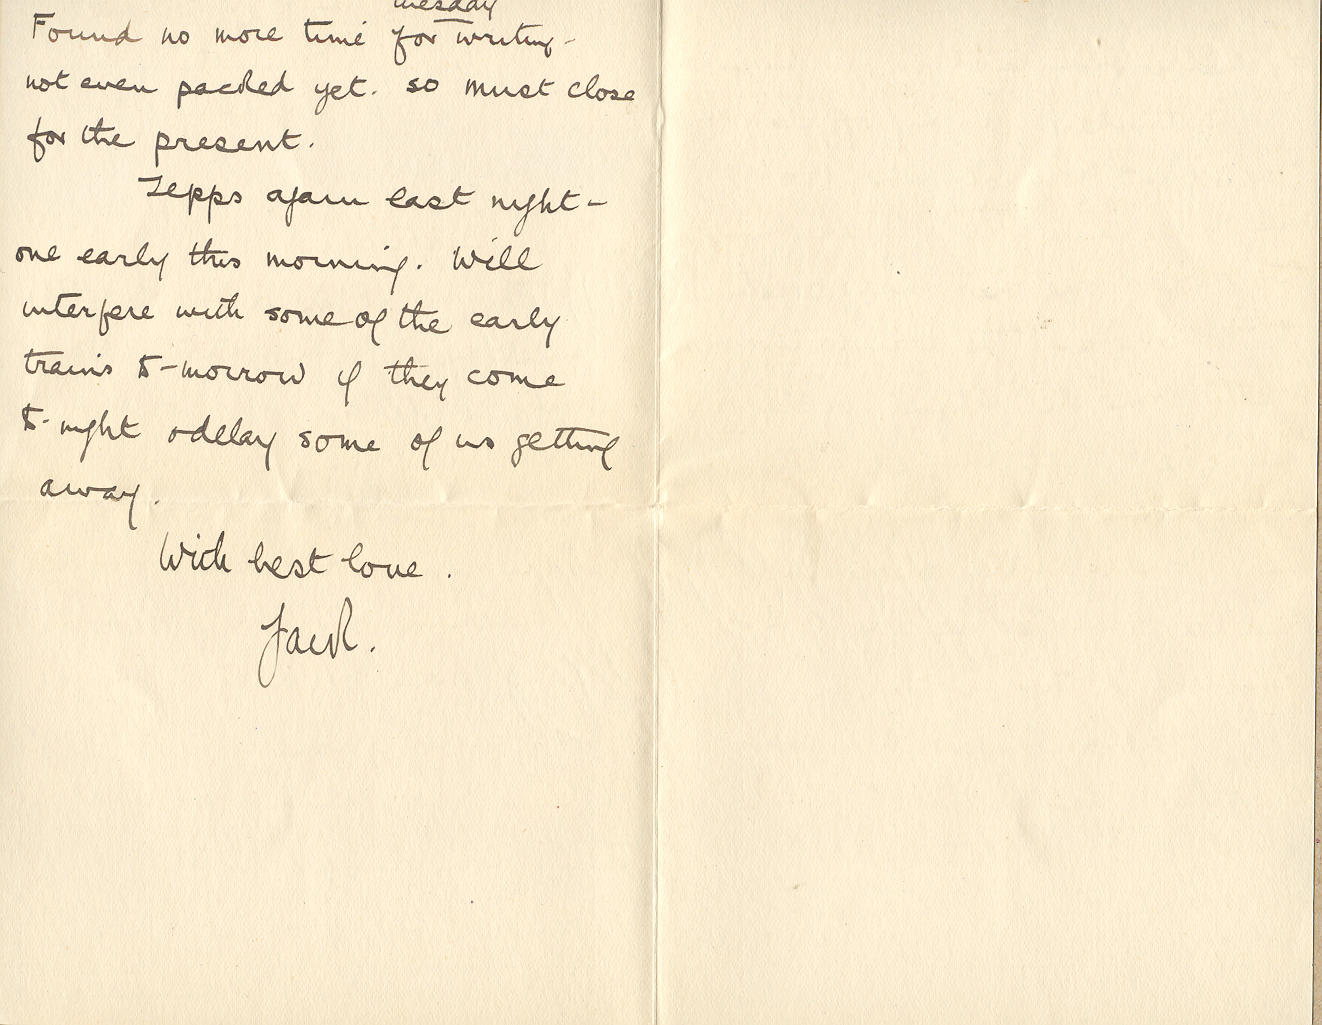 Tuesday
Found no more time for writing -
not even packed yet. so must close
for the present.
Zepps again last night -
one early this morning. Will
interfere with some of the early
trains to-morrow if they come
to-night & delay some of us getting
away.
With best love.
Jack.